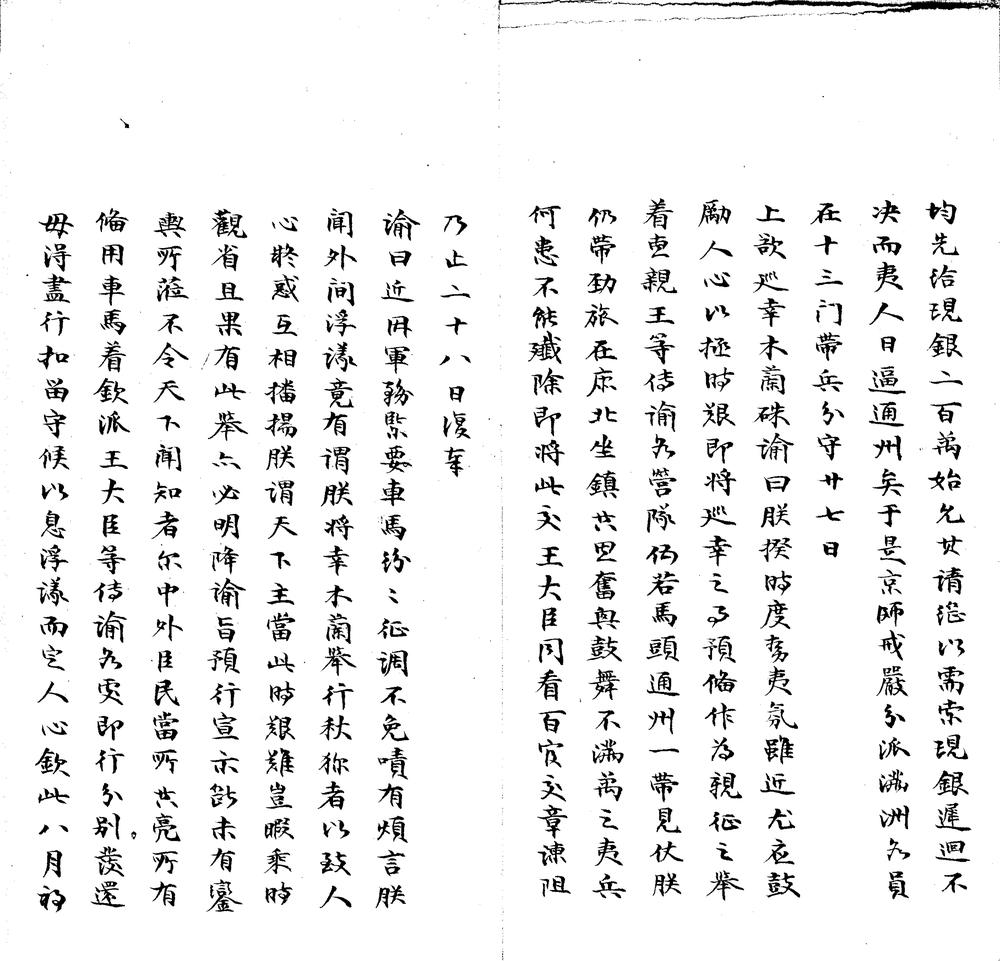 均先给現銀二百萬始允其请继以需索現銀遲迴不
决而夷人日逼通州矣于是京師戒嚴分派滿洲各員
在十三门帶兵分守廿七日
上欲巡幸木蘭硃谕曰朕揆時度势夷氛雖近尤应鼓
勵人心以拯時艱即将巡幸之事預俻作为親征之舉
着惠親王等传谕各營隊伍若馬頭通州一帶見仗朕
仍帶劲旅在京北坐鎮共思奮興鼓舞不滿萬之夷兵
何患不能殲除即将此交王大臣同看百官交章谏阻
乃止二十八日復奉
谕曰近因軍務緊要車馬纷〻征調不免嘖有煩言朕
闻外间浮議竟有谓朕将幸木蘭舉行秋狝者以致人
心疑惑互相播揚朕谓天下主當此時艱難豈暇乘時
觀省且果有此舉亦必明降谕旨預行宣示断未有鑾
輿所蒞不令天下闻知者尔中外臣民當所共亮所有
俻用車馬着欽派王大臣等传谕各處即行分别。發還
毋得盡行扣留守候以息浮議而定人心欽此八月初